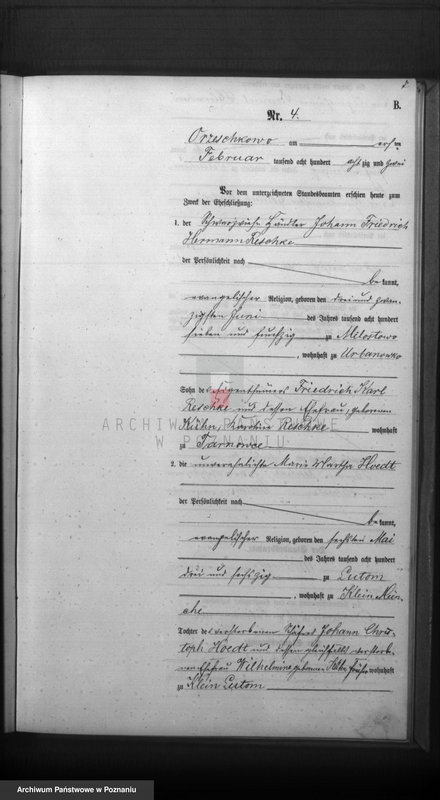 B.
Nr. 4.
Orzeschkowo am ersten
Februar tausend acht hundert achtzig und zwei
Vor dem unterzeichneten Standesbeamten erschien heute zum
Zweck der Eheschließung:
1. der Schwarzvieh Händler Johann Friedrich
Hermann Reschke
der Persönlichkeit nach
bekannt,
evangelischer Religion, geboren den drei und zwan-
zigsten Juni des Jahres tausend acht hundert
sieben und funfzig zu Milostowo
, wohnhaft zu Urbanowko
Sohn des Eigenthümers Friedrich Karl
Reschke und dessen Ehefrau, geborenen
Kühn, Karoline Reschke wohnhaft
ARCHIWUM PAŃSTWOWE
W POZNANIU
zu Tarnowce
2. die unverehelichte Maria Martha Hoedt
der Persönlichkeit nach
bekannt,
evangelischer Religion, geboren den sechsten Mai
des Jahres tausend acht hundert
drei und sechszig zu Lutom
, wohnhaft zu Klein Mün-
che
Tochter des verstorbenen Johann Chris-
toph Hoedt und dessen gleichfalls verstorb-
nen Ehefrau Wilhelmine geborenen früher wohnhaft
zu Klein Lutom
Archiwum Państwowe w Poznaniu